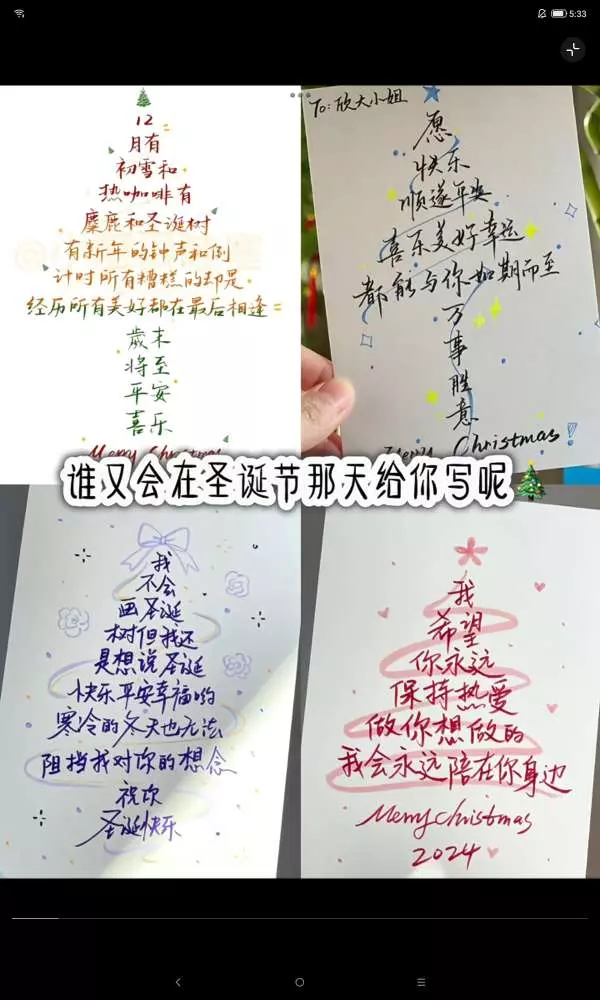 5:33
12
月有
初雪和
热咖啡有
麋鹿和圣诞树
有新年的钟声和倒
计时所有糟糕的却是
经历所有美好都在最后相逢
歲末
将至
平安
喜乐
Merry Christmas
To:欣大小姐
愿
快乐
顺遂平安
喜乐美好幸运
都能与你如期而至
万
事
胜
意
Merry Christmas!
谁又会在圣诞节那天给你写呢
我
不会
画圣诞
树但我还
是想说圣诞
快乐平安幸福哟
寒冷的冬天也无法
阻挡我对你的想念
祝欣
圣诞快乐
我
希望
你永远
保持热爱
做你想做的
我会永远陪在你身边
Merry christmas
2024